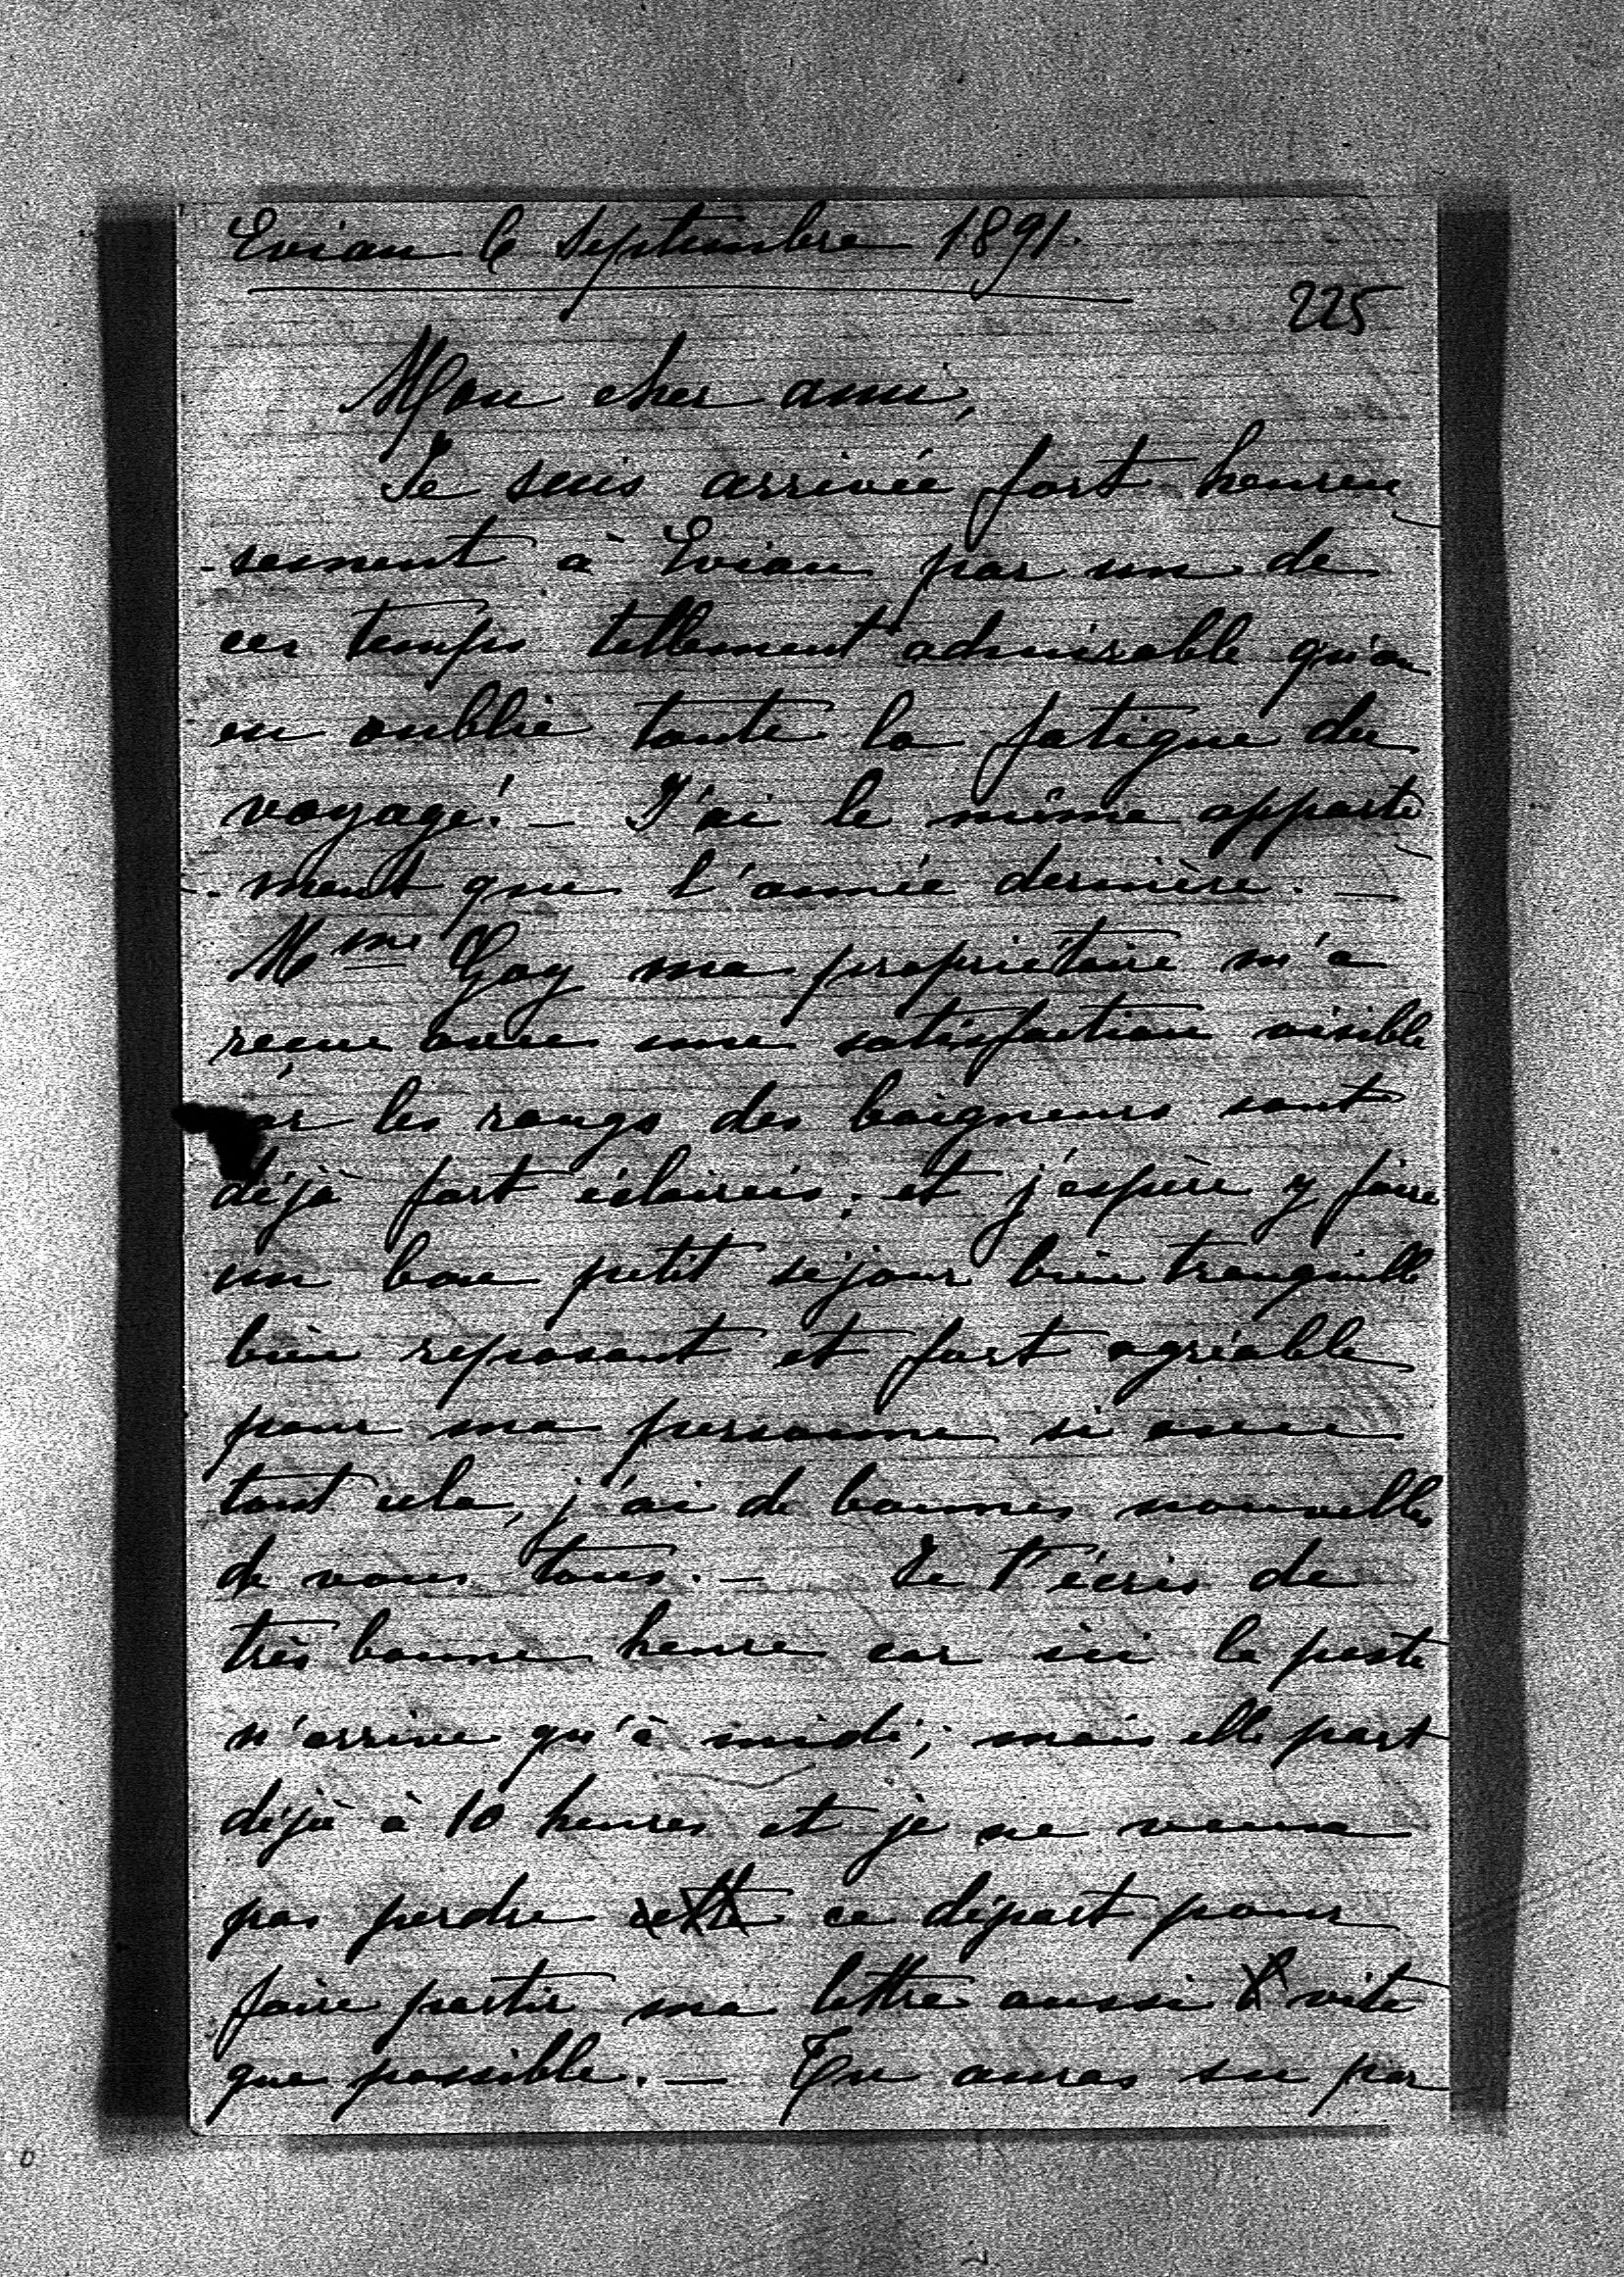 Evian 6 Septembre 1891.
225
Mon cher ami,
Je suis arrivée fort heureu
-sement à Evian par un de
ces temps tellement admirable qu'on
en oublie toute la fatigue du
voyage! _ J'ai le même apparte
-ment que l'année dernière. _
Mme Gay ma propriétaire m'a
reçue avec une satisfaction visible
car les rangs des baigneurs sont
déjà fort éclaircis; et j'espère y faire
un bon petit séjour bien tranquille
bien reposant et fort agréable
pour ma personne si avec
tout cela, j'ai de bonnes nouvelles
de vous tous. _ Je t'écris de
très bonne heure car ici la poste
n'arrive qu'à midi; mais elle part
déjà à 10 heures et je ne veux
pas perdre cette ce départ pour
faire partir ma lettre aussi vite
que possible. _ Tu auras su par